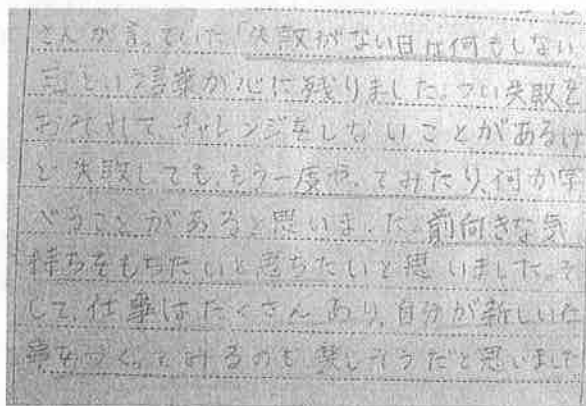 さんが言っていた「失敗がない日は何もしない
という言葉が心に残りました。つい失敗を
おそれて、チャレンジをしないことがあるけ
ど、失敗しても、もう一度やってみたり、何か学
べることがあると思いました。前向きな気
持ちをもちたいと思ちたいと思いました。そ
して、仕事はたくさんあり、自分が新しいな
事をつくってみるのも楽しそうだと思いました